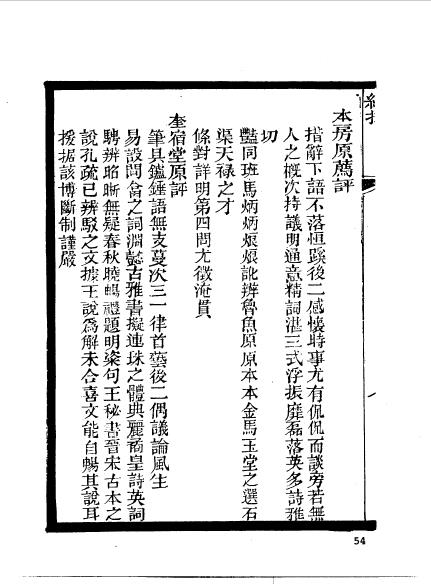 本房原薦評
措辭下語不落恒蹊後二感懷時事尤有侃侃而談旁若無
人之槪次持議明通意精詞湛三式浮振靡磊落英多詩雅
切
豔同班馬炳炳烺烺訛辨魯魚原原本本金馬玉堂之選石
渠天祿之才
條對詳明第四問尤徵淹貫
奎宿堂原評
筆具鑪錘語無支蔓次三一律首藝後二偶議論風生
易設問翕之詞淵懿古雅書擬連珠之體典麗矞皇詩英詞
騁辨昭晰無疑春秋曉暢禮題明粢句王秘書晉宋古本之
說孔疏已辨駁之文據王說爲解未合喜文能自暢其說耳
援据該博斷制謹嚴
54